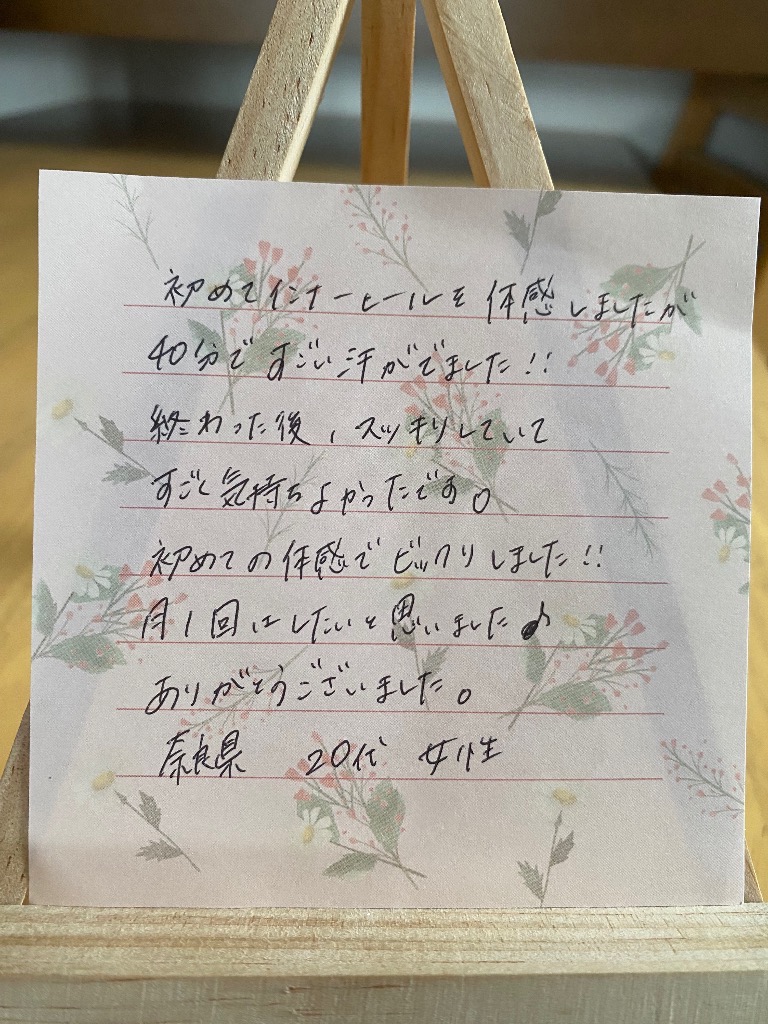 初めてインナーヒールを体感しましたが
40分ですごい汗がでました!!
終わった後、スッキリしていて
すごく気持ちよかったです。
初めての体感でビックリしました!!
月1回はしたいと思いました♪
ありがとうございました。
奈良県 20代 女性